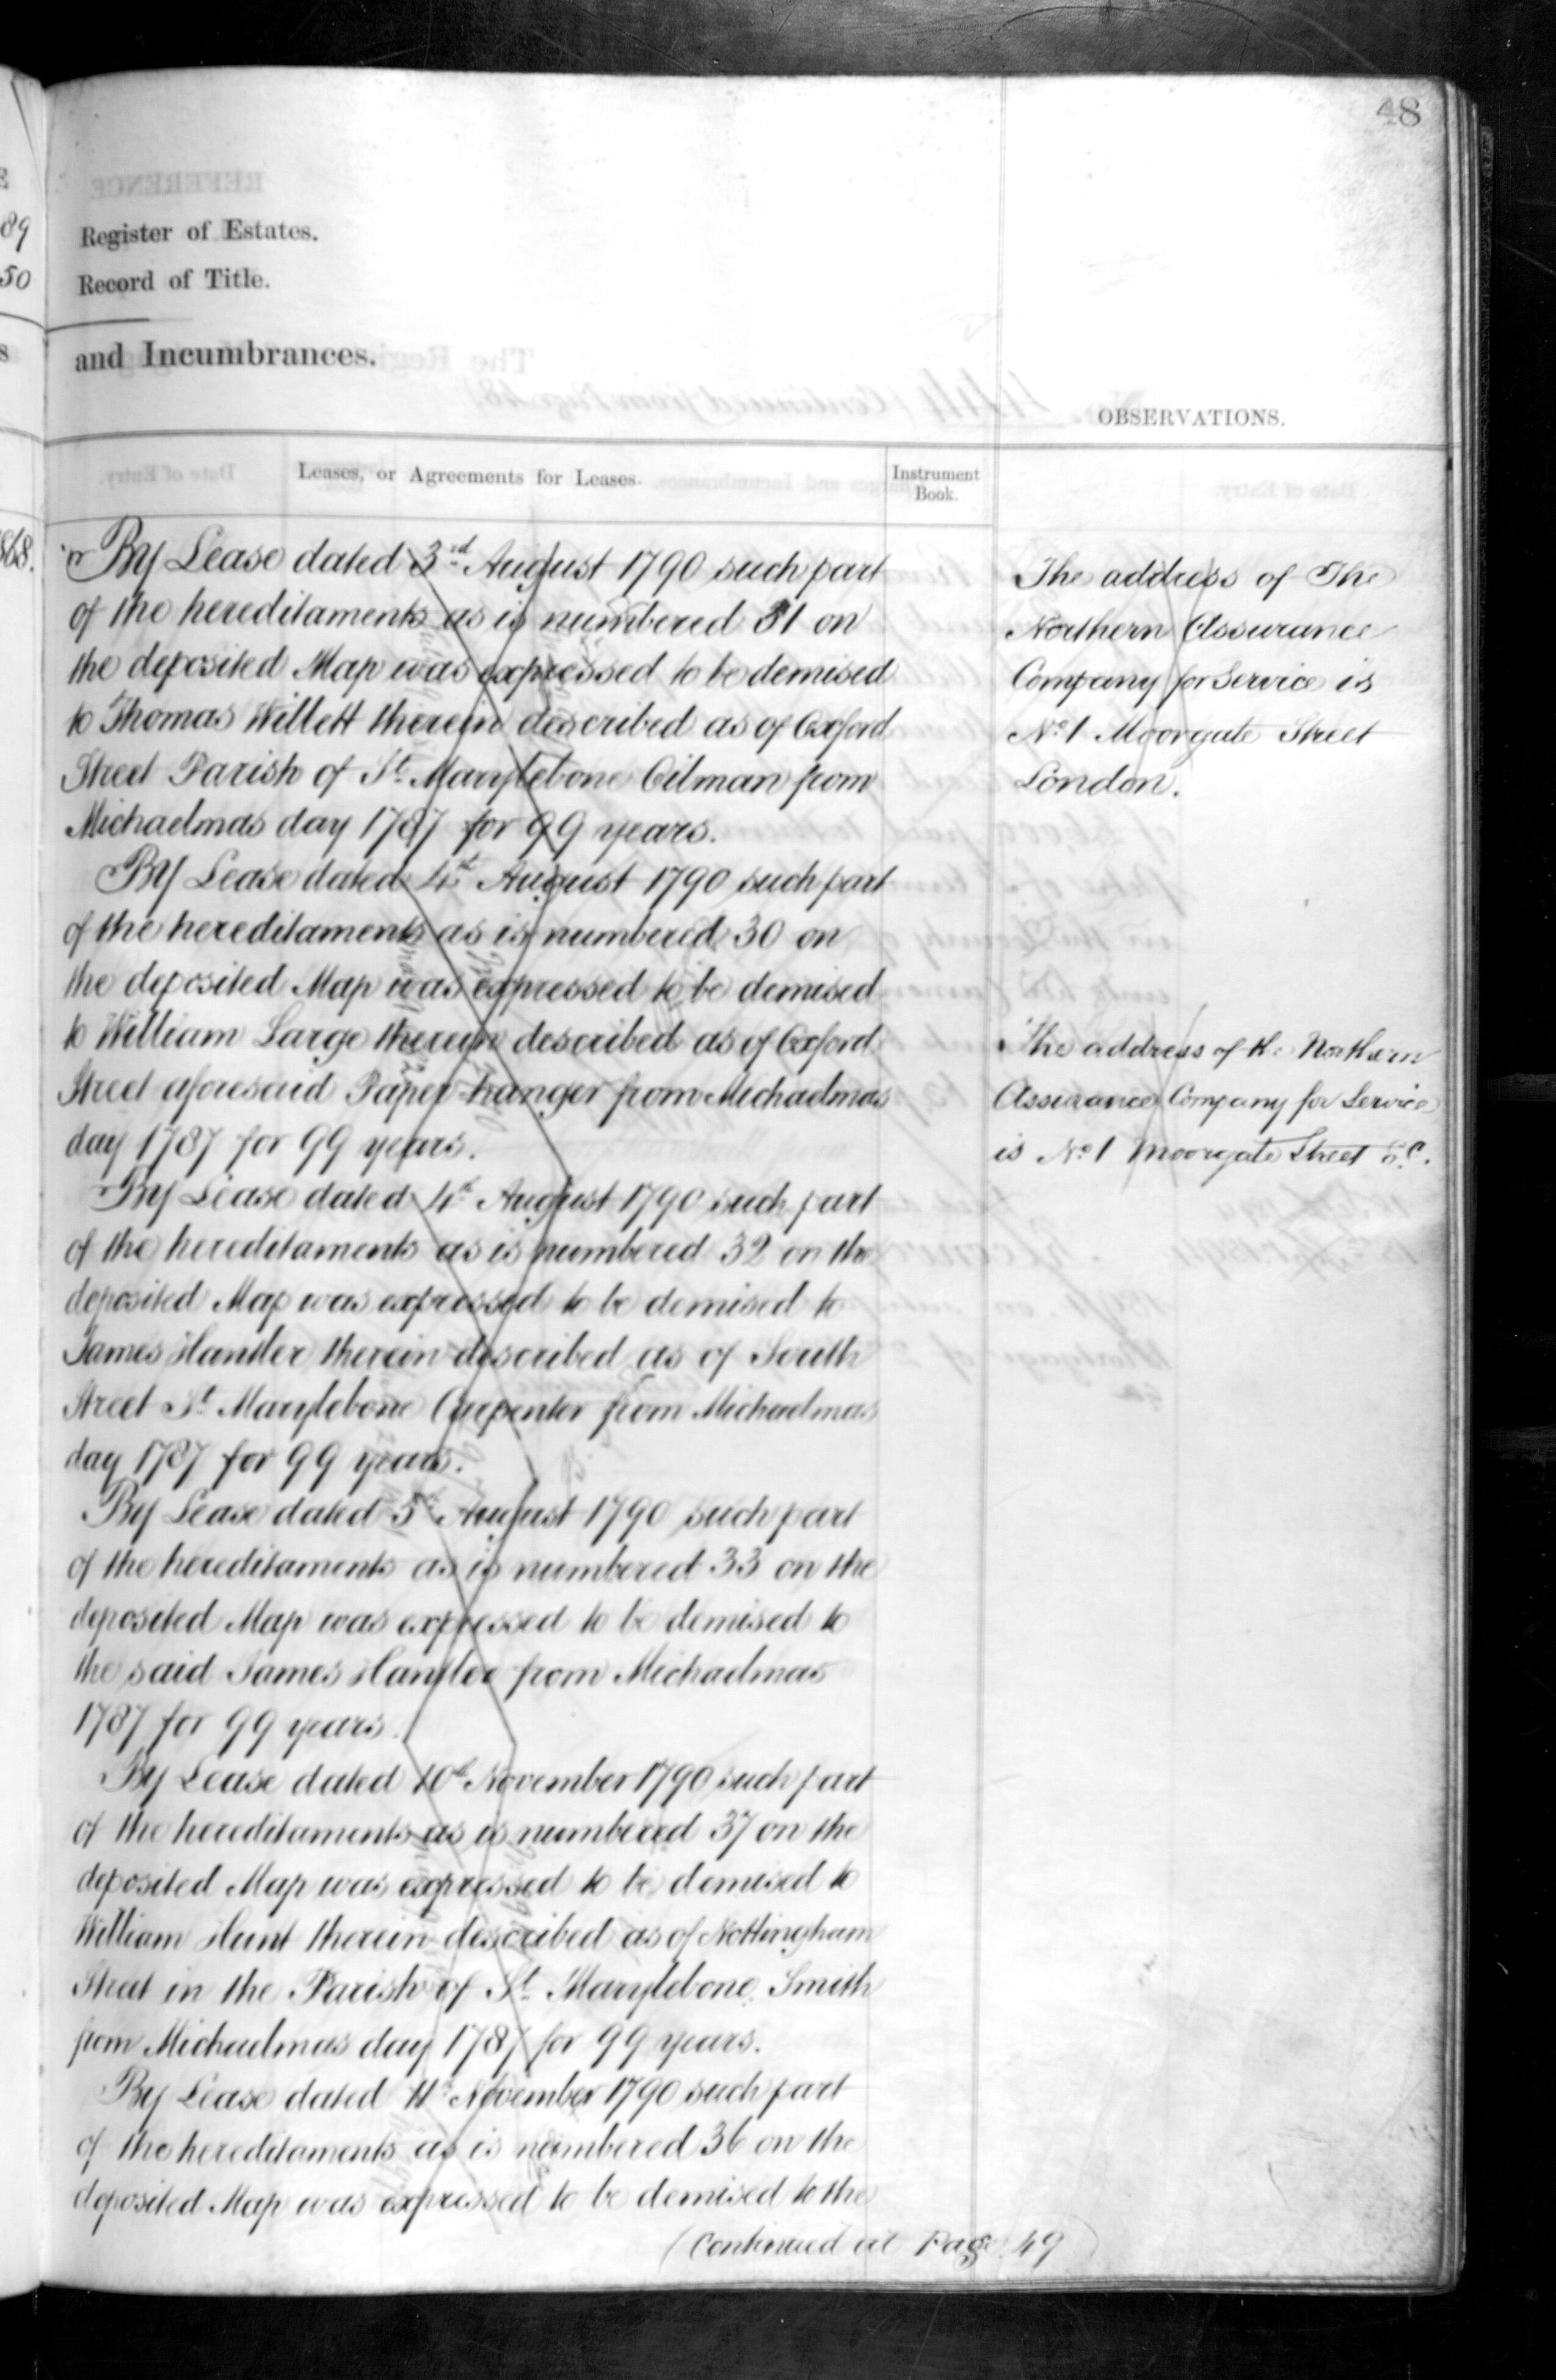 48
Register of Estates.
Record of Title.
and Incumbrances.
OBSERVATIONS.
Leases, or Agreements for Leases.
Instrument
Book.
89
50
868.
By Lease dated 3rd August 1790 such part
of the hereditaments as is numbered 31 on
the deposited Map was expressed to be demised
to Thomas Willett therein described as of Oxford
Street Parish of St. Marylebone Oilman from
Michaelmas day 1787 for 99 years.
By Lease dated 4th August 1790 such part
of the hereditaments as is numbered 30 on
the deposited Map was expressed to be demised
to William Large therein described as of Oxford
Street aforesaid Paper hanger from Michaelmas
day 1787 for 99 years.
By Lease dated 4th August 1790 such part
of the hereditaments as is numbered 32 on the
deposited Map was expressed to be demised to
James Hamler therein described as of South
Street St. Marylebone Carpenter from Michaelmas
day 1787 for 99 years.
By Lease dated 5th August 1790 such part
of the hereditaments as is numbered 33 on the
deposited Map was expressed to be demised to
the said James Hamler from Michaelmas
1787 for 99 years.
By Lease dated 10th November 1790 such part
of the hereditaments as is numbered 37 on the
deposited Map was expressed to be demised to
William Hunt therein described as of Nottingham
Street in the Parish of St. Marylebone Smith
from Michaelmas day 1787 for 99 years.
By Lease dated 11th November 1790 such part
of the hereditaments as is numbered 36 on the
deposited Map was expressed to be demised to the
(Continued at Page 49)
The address of The
Northern Assurance
Company for Service is
No. 1 Moorgate Street
London.
The address of the Northern
Assurance Company for Service
is No. 1 Moorgate Street E.C.